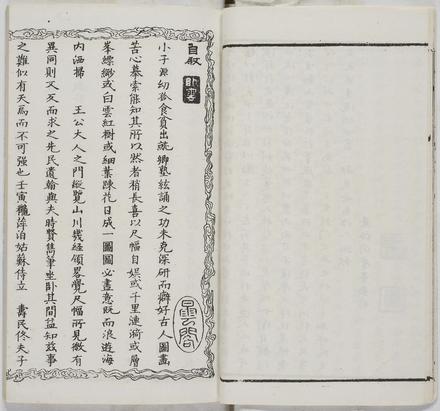 自敘
小子源幼谷食貧出就鄉塾絃誦之功未克深研而癖好古人圖畫
苦心慕索能知其所以然者稍長喜以尺幅自娛或千里漣漪或層
峯縹緲或白雲紅樹或細葉疎花日成一圖圖必盡意既而浪遊海
内洒掃　王公大人之門縱覽山川幾經領畧覺尺幅所見微有
異同則又反而求之先民遺翰與夫時賢雋筆坐卧其間益知茲事
之難似有天焉而不可强也壬寅穐萍泊姑蘇侍立　壽民佟夫子